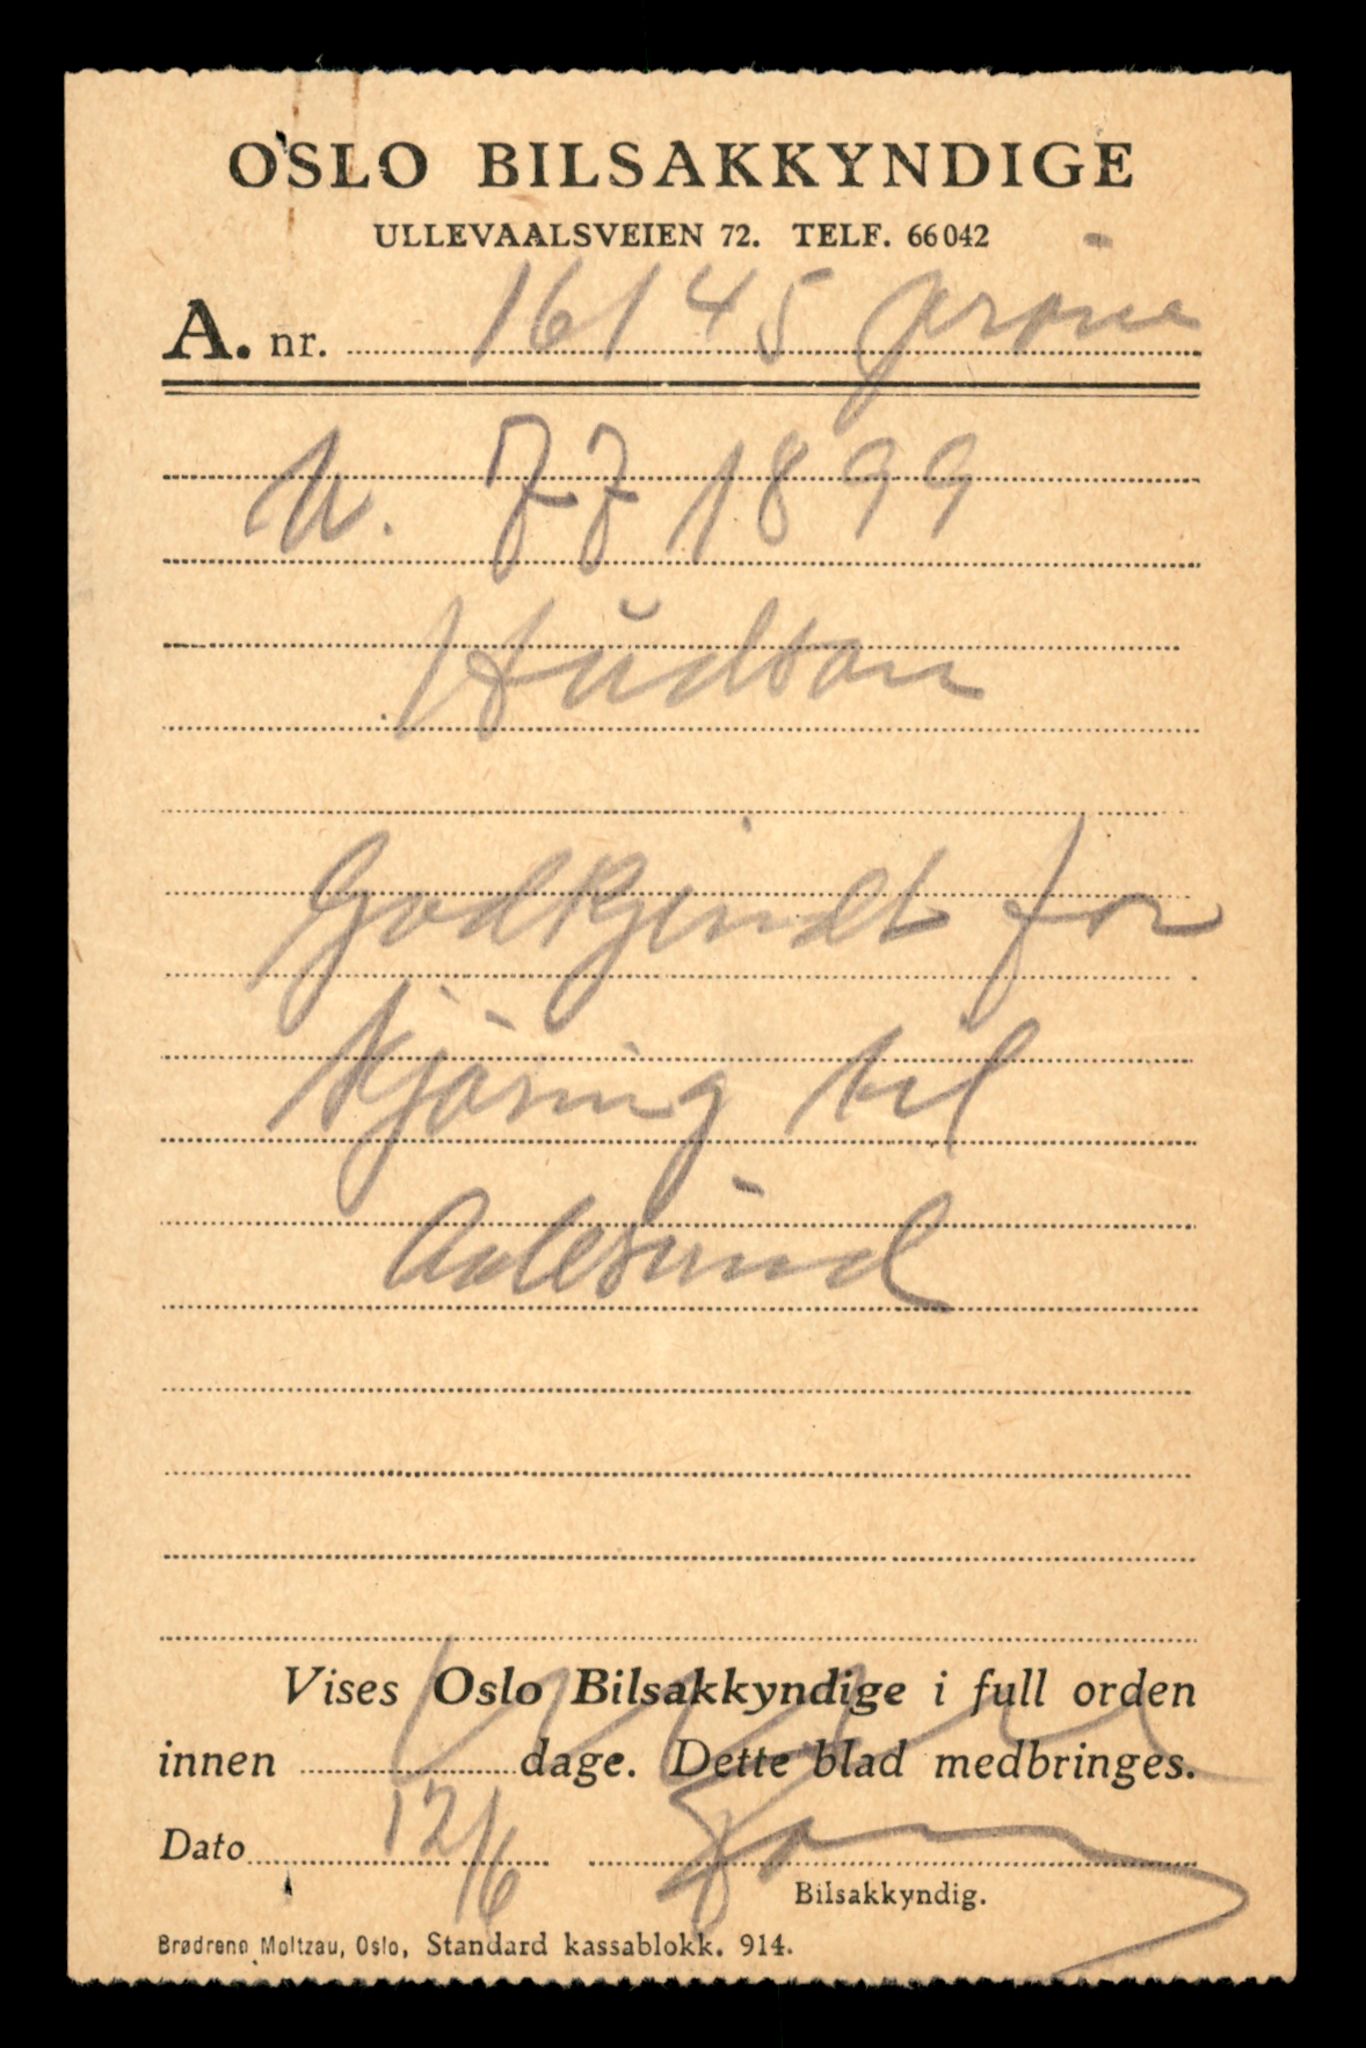 OSLO BILSAKKYNDIGE
ULLEVAALSVEIEN 72. TELF. 66042
A. nr. 16145 grøne
N. 771899
Hudson
Godkjendt for
kjöring til
Aalesund
Vises Oslo Bilsakkyndige i full orden
innen ............ dage. Dette blad medbringes.
Dato 12/6
Bilsakkyndig.
Brødrene Moltzau, Oslo, Standard kassablokk. 914.